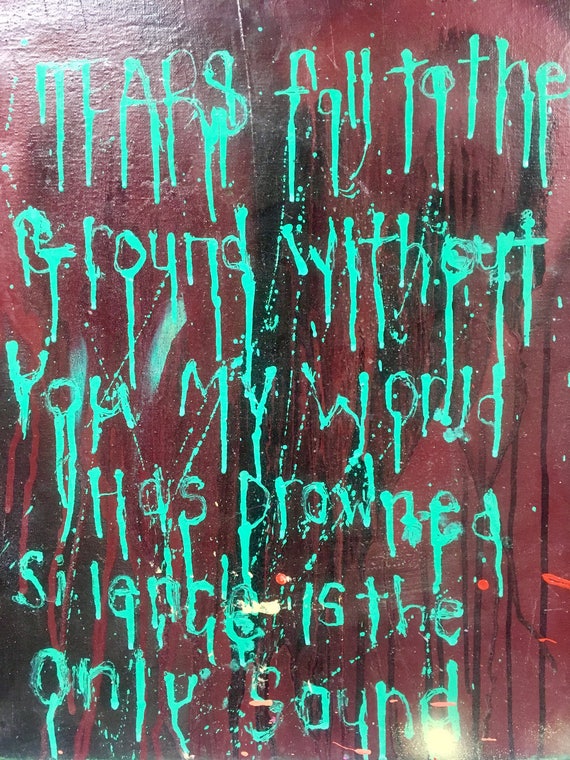 TEARS fall to the
Ground without
You My World
Has Drowned
Silence is the
Only Sound